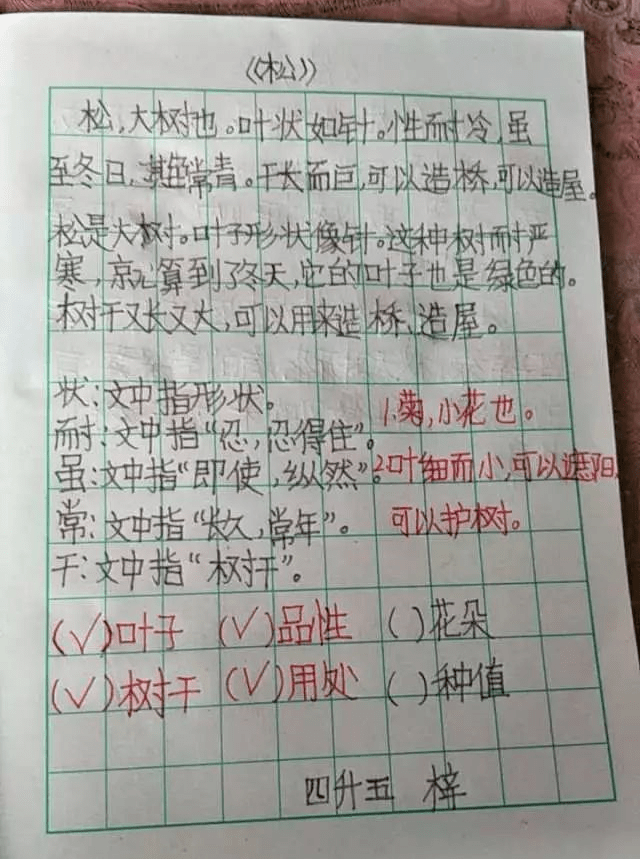 《松》
松，大树也。叶状如针。性耐冷，虽
至冬日，其色常青。干长而巨，可以造桥，可以造屋。
松是大树。叶子形状像针。这种树耐严
寒，就算到了冬天，它的叶子也是绿色的。
树干又长又大，可以用来造桥、造屋。
状：文中指形状。
耐：文中指“忍，忍得住”。
虽：文中指“即使，纵然”。
常：文中指“长久，常年”。
干：文中指“树干”。
1.菊，小花也。
2.叶细而小，可以遮阳，
可以护树。
(√)叶子 (√)品性 ( )花朵
(√)树干 (√)用处 ( )种值
四升五 梓